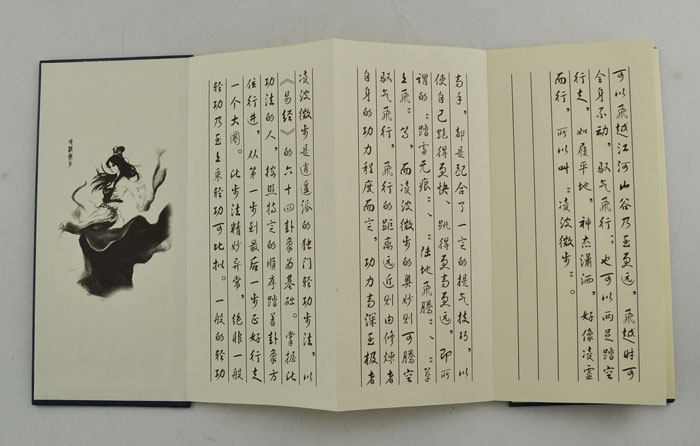 凌波微步是逍遥派的独门轻功步法，以
《易经》的六十四卦象为基础。掌握此
功法的人，按照特定的顺序踏着卦象方
位行进，从第一步到最后一步正好行走
一个大圆。此步法精妙异常，绝非一般
轻功乃至上乘轻功可比拟。一般的轻功
高手，都是配合了一定的提气技巧，以
使自己跑得更快、跳得更高更远，即所
谓的“踏雪无痕”、“陆地飛腾”、“草
上飛”等，而凌波微步的奥妙则可腾空
驭气飛行，飛行的距离远近则由修炼者
自身的功力程度而定，功力高深至极者
可以飛越江河山谷乃至更远，飛越时可
全身不动，驭气飛行；也可以两足踏空
行走，如履平地，神态潇洒，好像凌虚
而行，所以叫“凌波微步”。